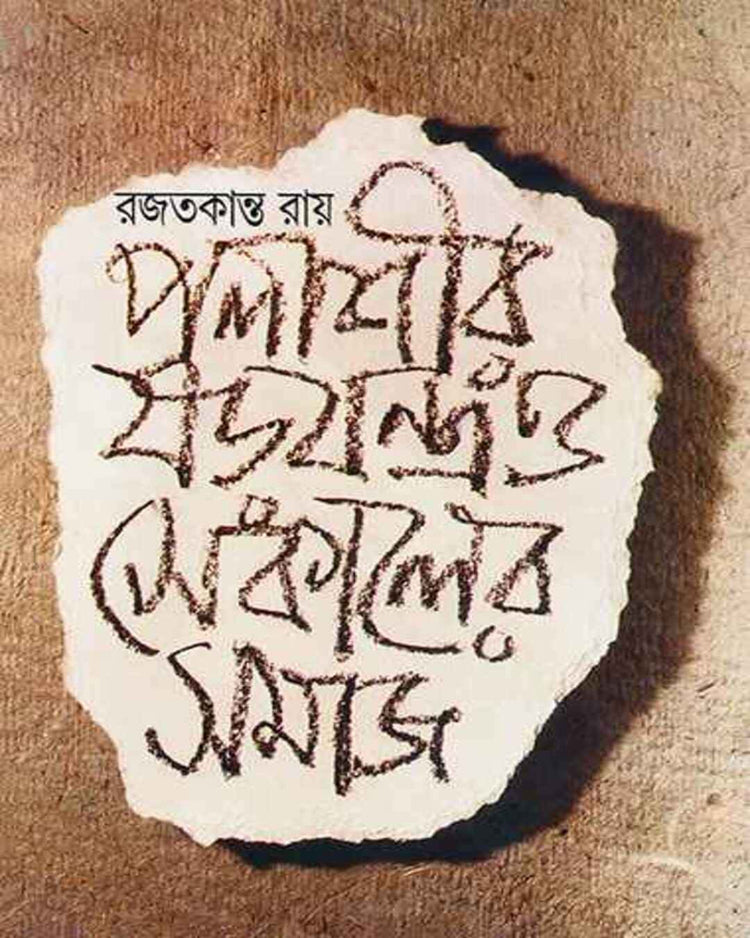 রজতকান্ত রায়
পলাশীর
ষড়যন্ত্র ও
সেকালের
সমাজ